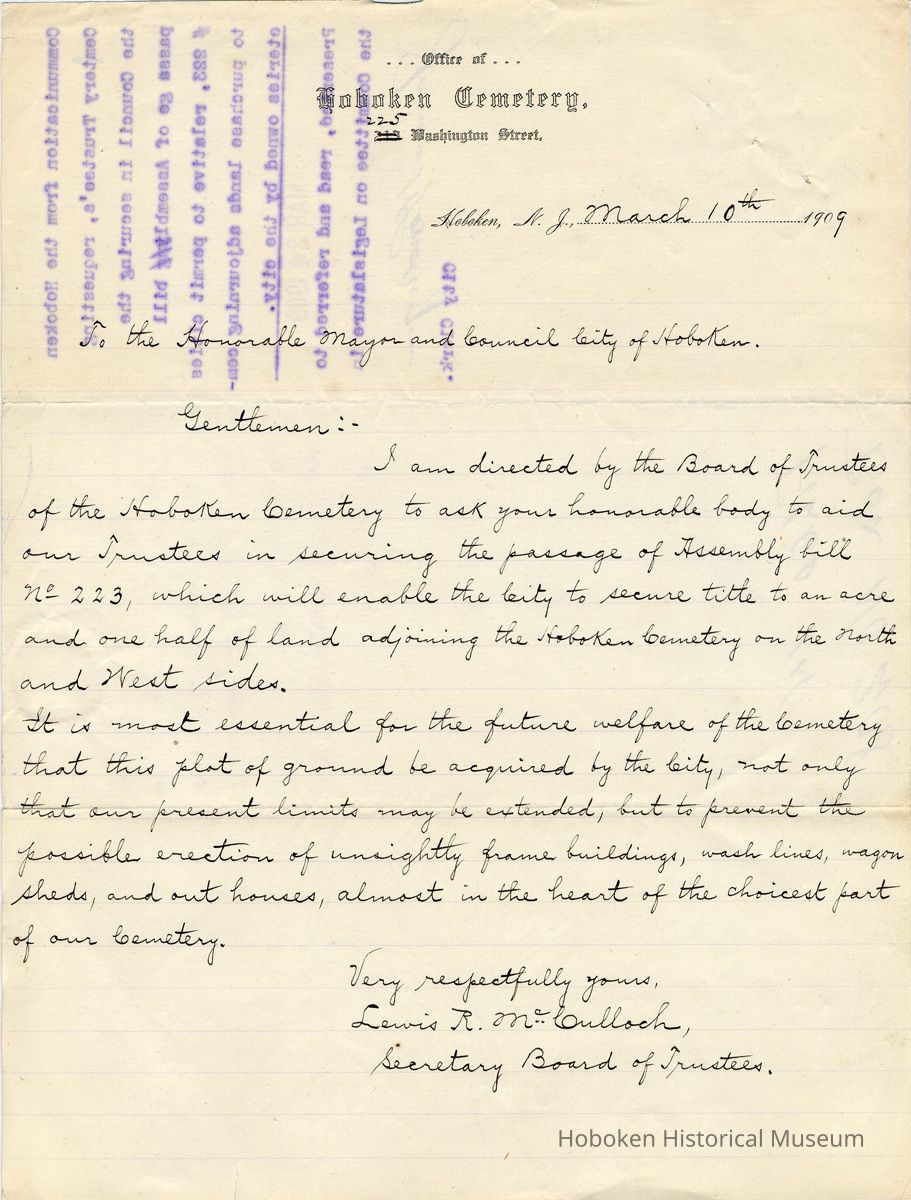 ... Office of ...
Hoboken Cemetery,
225
Washington Street,
Hoboken, N. J., March 10th 1909
To the Honorable Mayor and Council City of Hoboken.
Gentlemen:-
I am directed by the Board of Trustees
of the Hoboken Cemetery to ask your honorable body to aid
our Trustees in securing the passage of Assembly bill
No 223, which will enable the City to secure title to an acre
and one half of land adjoining the Hoboken Cemetery on the North
and West sides.
It is most essential for the future welfare of the Cemetery
that this plot of ground be acquired by the City, not only
that our present limits may be extended, but to prevent the
possible erection of unsightly frame buildings, wash lines, wagon
sheds, and out houses, almost in the heart of the choicest part
of our Cemetery.
Very respectfully yours,
Lewis R. McCulloch,
Secretary Board of Trustees.
Communication from the Hoboken
Cemtery Trustee's, requesting
the Council in securing the
passa ge of Assembly bill
# 223, relative to permit cities
to purchase lands adjourning cem-
eteries owned by the city.
Presented, read and referred to
the Committee on Legislature
City Clerk.
Hoboken Historical Museum